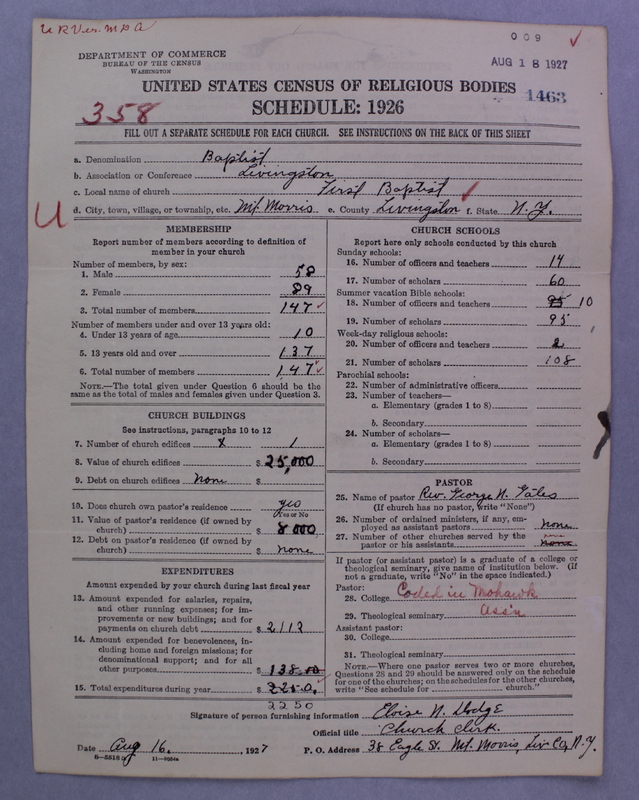 U R Ver. M D A
009
DEPARTMENT OF COMMERCE
BUREAU OF THE CENSUS
WASHINGTON
AUG 18 1927
UNITED STATES CENSUS OF RELIGIOUS BODIES
1463
358
SCHEDULE: 1926
FILL OUT A SEPARATE SCHEDULE FOR EACH CHURCH. SEE INSTRUCTIONS ON THE BACK OF THIS SHEET
a. Denomination Baptist
b. Association or Conference Livingston
c. Local name of church First Baptist
U
d. City, town, village, or township, etc. Mt. Morris e. County Livingston f. State N.Y.
MEMBERSHIP
Report number of members according to definition of
member in your church
Number of members, by sex:
1. Male 58
2. Female 89
3. Total number of members 147
Number of members under and over 13 years old:
4. Under 13 years of age 10
5. 13 years old and over 137
6. Total number of members 147
NOTE.—The total given under Question 6 should be the
same as the total of males and females given under Question 3.
CHURCH BUILDINGS
See instructions, paragraphs 10 to 12
7. Number of church edifices x 1
8. Value of church edifices $ 25,000
9. Debt on church edifices none $
10. Does church own pastor's residence yes
Yes or No
11. Value of pastor's residence (if owned by
church) $ 8000
12. Debt on pastor's residence (if owned by
church) $ none
EXPENDITURES
Amount expended by your church during last fiscal year
13. Amount expended for salaries, repairs,
and other running expenses; for im-
provements or new buildings; and for
payments on church debt $ 2112
14. Amount expended for benevolences, in-
cluding home and foreign missions; for
denominational support; and for all
other purposes 138.00
15. Total expenditures during year $ 2250.
2250
CHURCH SCHOOLS
Report here only schools conducted by this church
Sunday schools:
16. Number of officers and teachers 14
17. Number of scholars 60
Summer vacation Bible schools:
18. Number of officers and teachers 95 10
19. Number of scholars 95
Week-day religious schools:
20. Number of officers and teachers 2
21. Number of scholars 108
Parochial schools:
22. Number of administrative officers
23. Number of teachers—
a. Elementary (grades 1 to 8)
b. Secondary
24. Number of scholars—
a. Elementary (grades 1 to 8)
b. Secondary
PASTOR
25. Name of pastor Rev. George N. Gates
(If church has no pastor, write "None")
26. Number of ordained ministers, if any, em-
ployed as assistant pastors none
27. Number of other churches served by the
pastor or his assistants none
If pastor (or assistant pastor) is a graduate of a college or
theological seminary, give name of institution below. (If
not a graduate, write "No" in the space indicated.)
Pastor:
28. College Coded in Mohawk
29. Theological seminary Ass'n
Assistant pastor:
30. College
31. Theological seminary
NOTE.—Where one pastor serves two or more churches,
Questions 28 and 29 should be answered only on the schedule
for one of the churches; on the schedules for the other churches,
write "See schedule for church."
Signature of person furnishing information Eloise N. Dodge
Official title Church Clerk.
Date Aug 16, 1927 P. O. Address 38 Eagle St. Mt. Morris, Liv Co, N.Y.